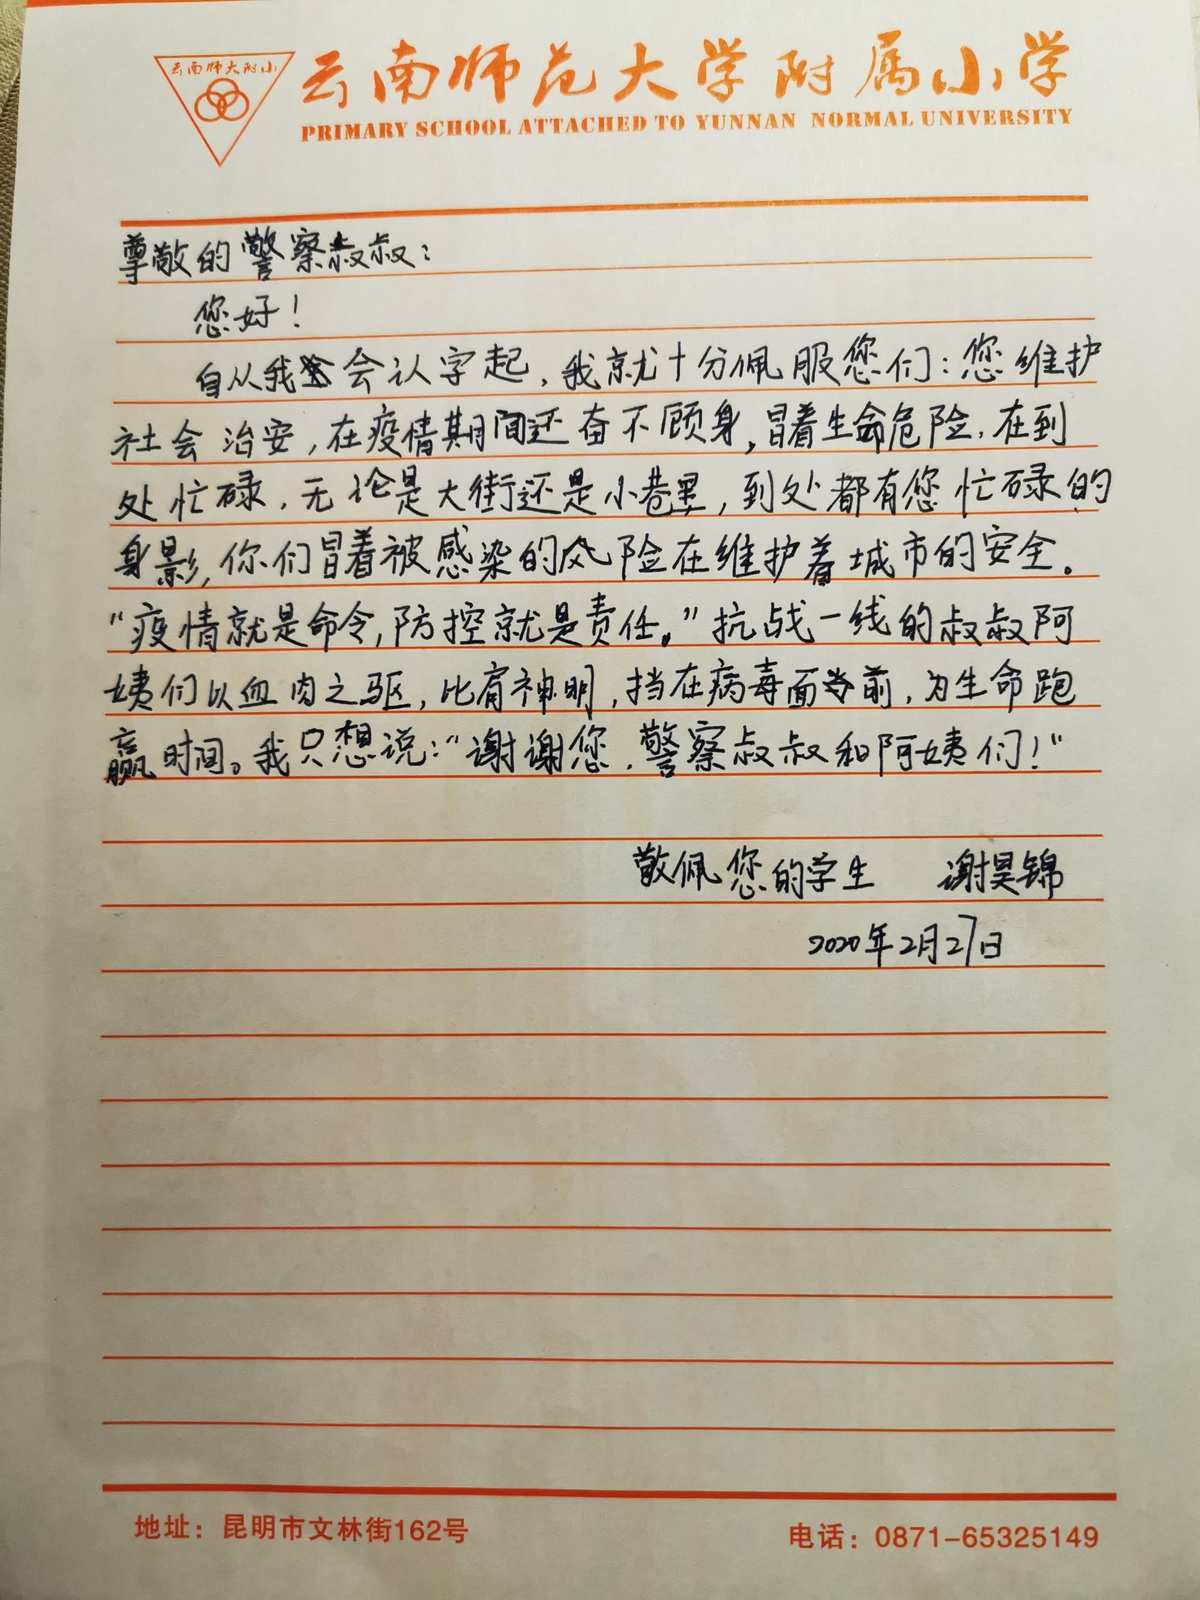 云南师大附小
云南师范大学附属小学
PRIMARY SCHOOL ATTACHED TO YUNNAN NORMAL UNIVERSITY
尊敬的警察叔叔：
您好！
自从我会认字起，我就十分佩服您们：您维护
社会治安，在疫情期间还奋不顾身，冒着生命危险，在到
处忙碌，无论是大街还是小巷里，到处都有您忙碌的
身影，你们冒着被感染的风险在维护着城市的安全。
“疫情就是命令，防控就是责任。”抗战一线的叔叔阿
姨们以血肉之驱，比肩神明，挡在病毒面前，为生命跑
赢时间。我只想说：“谢谢您，警察叔叔和阿姨们！”
敬佩您的学生 谢昊锦
2020年2月27日
地址：昆明市文林街162号
电话：0871-65325149